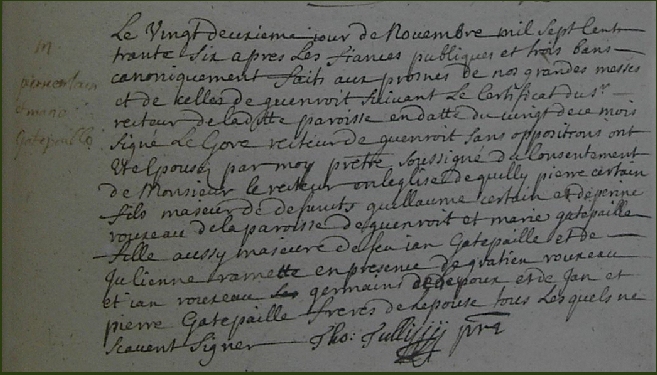 m
pierre certain
et marie
Gatepaille
Le Vingt deuxieme jour de Novembre mil sept Cent
trante Six apres Les fiances publiques et trois bans
canoniquement faits aux prosnes de nos grandes messes
et de Celles de guenroit Suivant Le Certificat du Sr
recteur de laditte paroisse en datte du vingt de ce mois
Signé Le Gove recteur de guenroit Sans oppositions ont
Eté Epousés par moy prêtre Soussigné du Consentement
de Monsieur le recteur en leglise de quilly pierre certain
fils majeur de defunts guillaume certain et de perine
rouxeau de la paroisse de guenroit et marie gatepaille
fille aussy majeure de feu ian Gatepaille et de
Julienne ramette en presence de gratien rouxeau
et ian rouxeau germains de Lepoux et de Jan et
pierre Gatepaille freres de Lepouse tous Lesquels ne
Scavent Signer Tho: Jullij prê